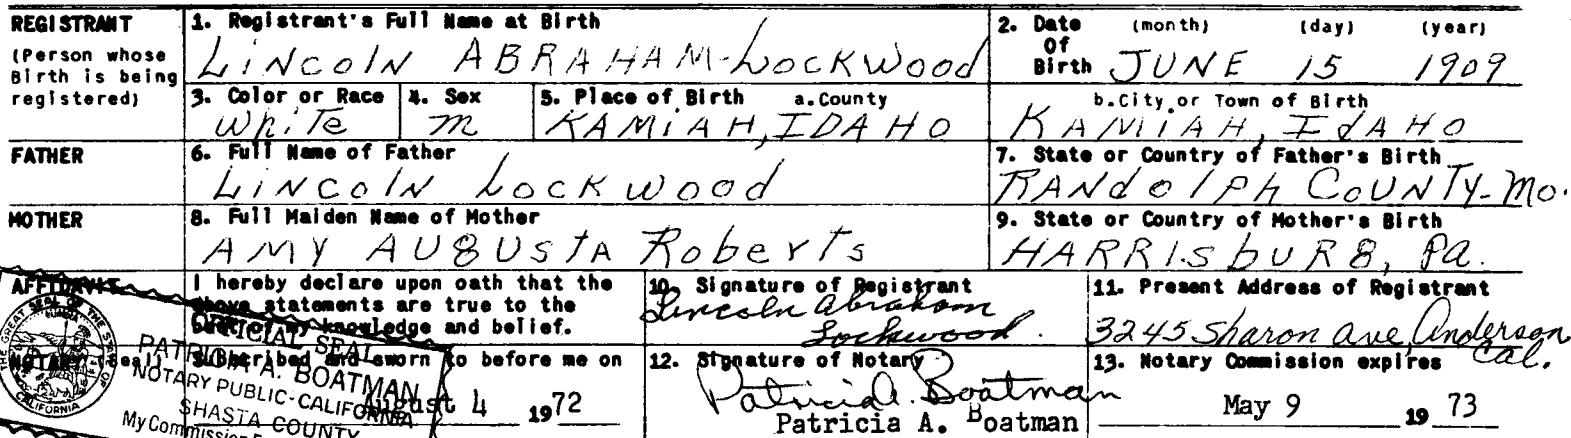 REGISTRANT
(Person whose
Birth is being
registered)
1. Registrant's Full Name at Birth
LINCOLN ABRAHAM-LOCKWOOD
2. Date Of Birth (month) (day) (year)
JUNE 15 1909
3. Color or Race
White
4. Sex
m
5. Place of Birth a.County
KAMIAH, IDAHO
b.City or Town of Birth
KAMIAH, IdAHO
FATHER
6. Full Name of Father
LINCOLN LOCKWOOD
7. State or Country of Father's Birth
RANdolph COUNTY-Mo.
MOTHER
8. Full Maiden Name of Mother
AMY AUGUSTA Roberts
9. State or Country of Mother's Birth
HARRISbURg, PA.
AFFIDAVIT
I hereby declare upon oath that the
above statements are true to the
best of my knowledge and belief.
10. Signature of Registrant
Lincoln Abraham
Lockwood.
11. Present Address of Registrant
3245 Sharon ave, Anderson
Cal.
Subscribed and sworn to before me on
August 4 1972
12. Signature of Notary
Patricia A. Boatman
Patricia A. Boatman
13. Notary Commission expires
May 9 1973
OFFICIAL SEAL
PATRICIA A. BOATMAN
NOTARY PUBLIC-CALIFORNIA
SHASTA COUNTY
My Commission
THE GREAT SEAL OF THE STATE OF
CALIFORNIA